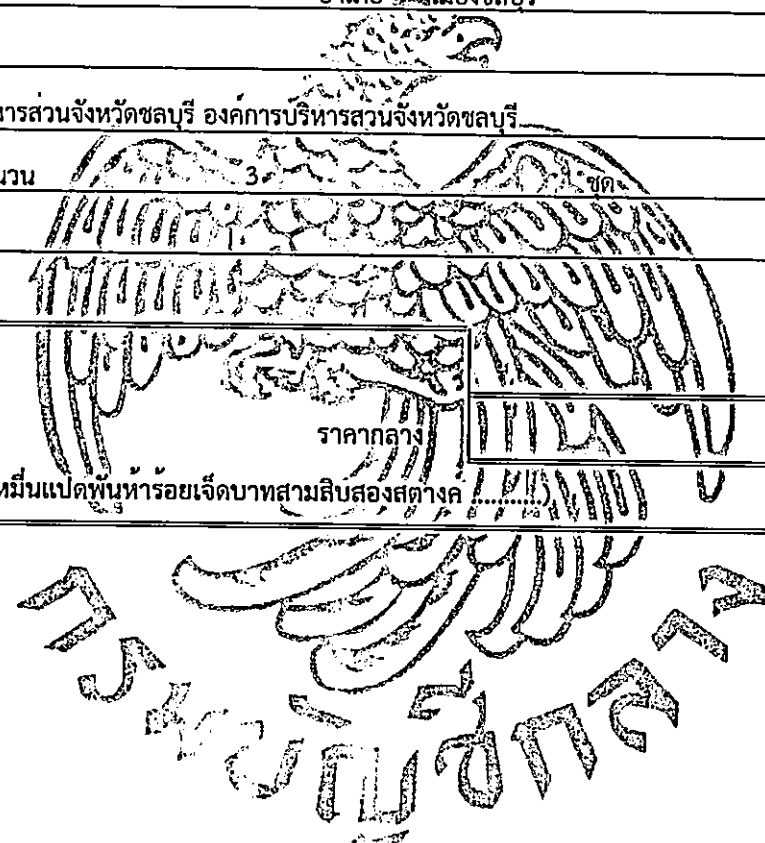 เมืองชลบุรี
หารส่วนจังหวัดชลบุรี องค์การบริหารส่วนจังหวัดชลบุรี
นวน 3 ชุด
ราคากลาง
หมื่นแปดพันห้าร้อยเจ็ดบาทสามสิบสองสตางค์ ...........)
กรมบัญชีกลา